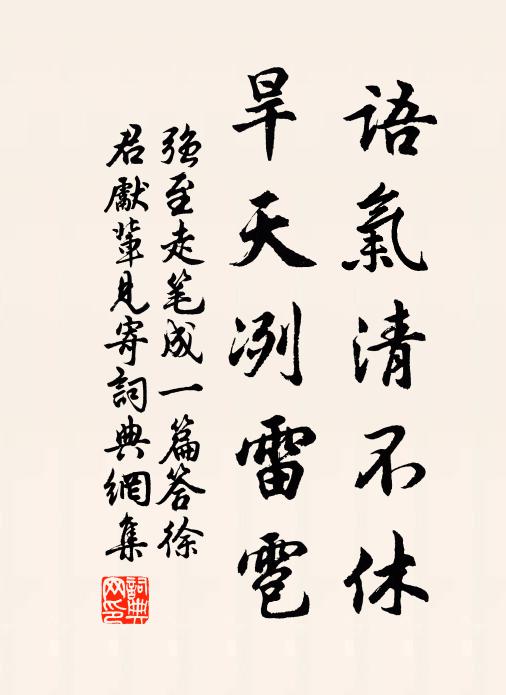 語氣清不休
旱天冽雷雹
强至走笔成一篇答徐
君獻輩見寄詞典網集